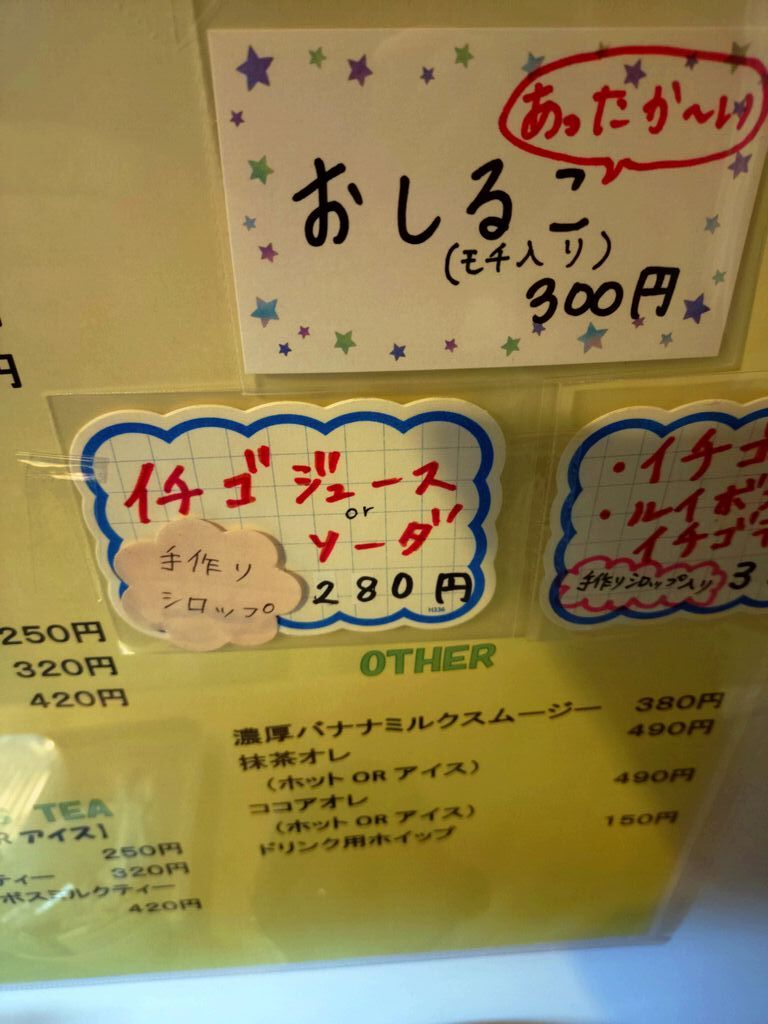 あったか〜い
おしるこ
(モチ入り)
300円
イチゴジュース
or
ソーダ
手作り
シロップ
280円
H336
・イチゴ
・ルイボ
イチゴ
手作りシロップ入り
3
円
250円
320円
420円
OTHER
濃厚バナナミルクスムージー 380円
抹茶オレ 490円
(ホット OR アイス)
ココアオレ 490円
(ホット OR アイス)
ドリンク用ホイップ 150円
TEA
R アイス]
250円
ティー 320円
ボスミルクティー
420円